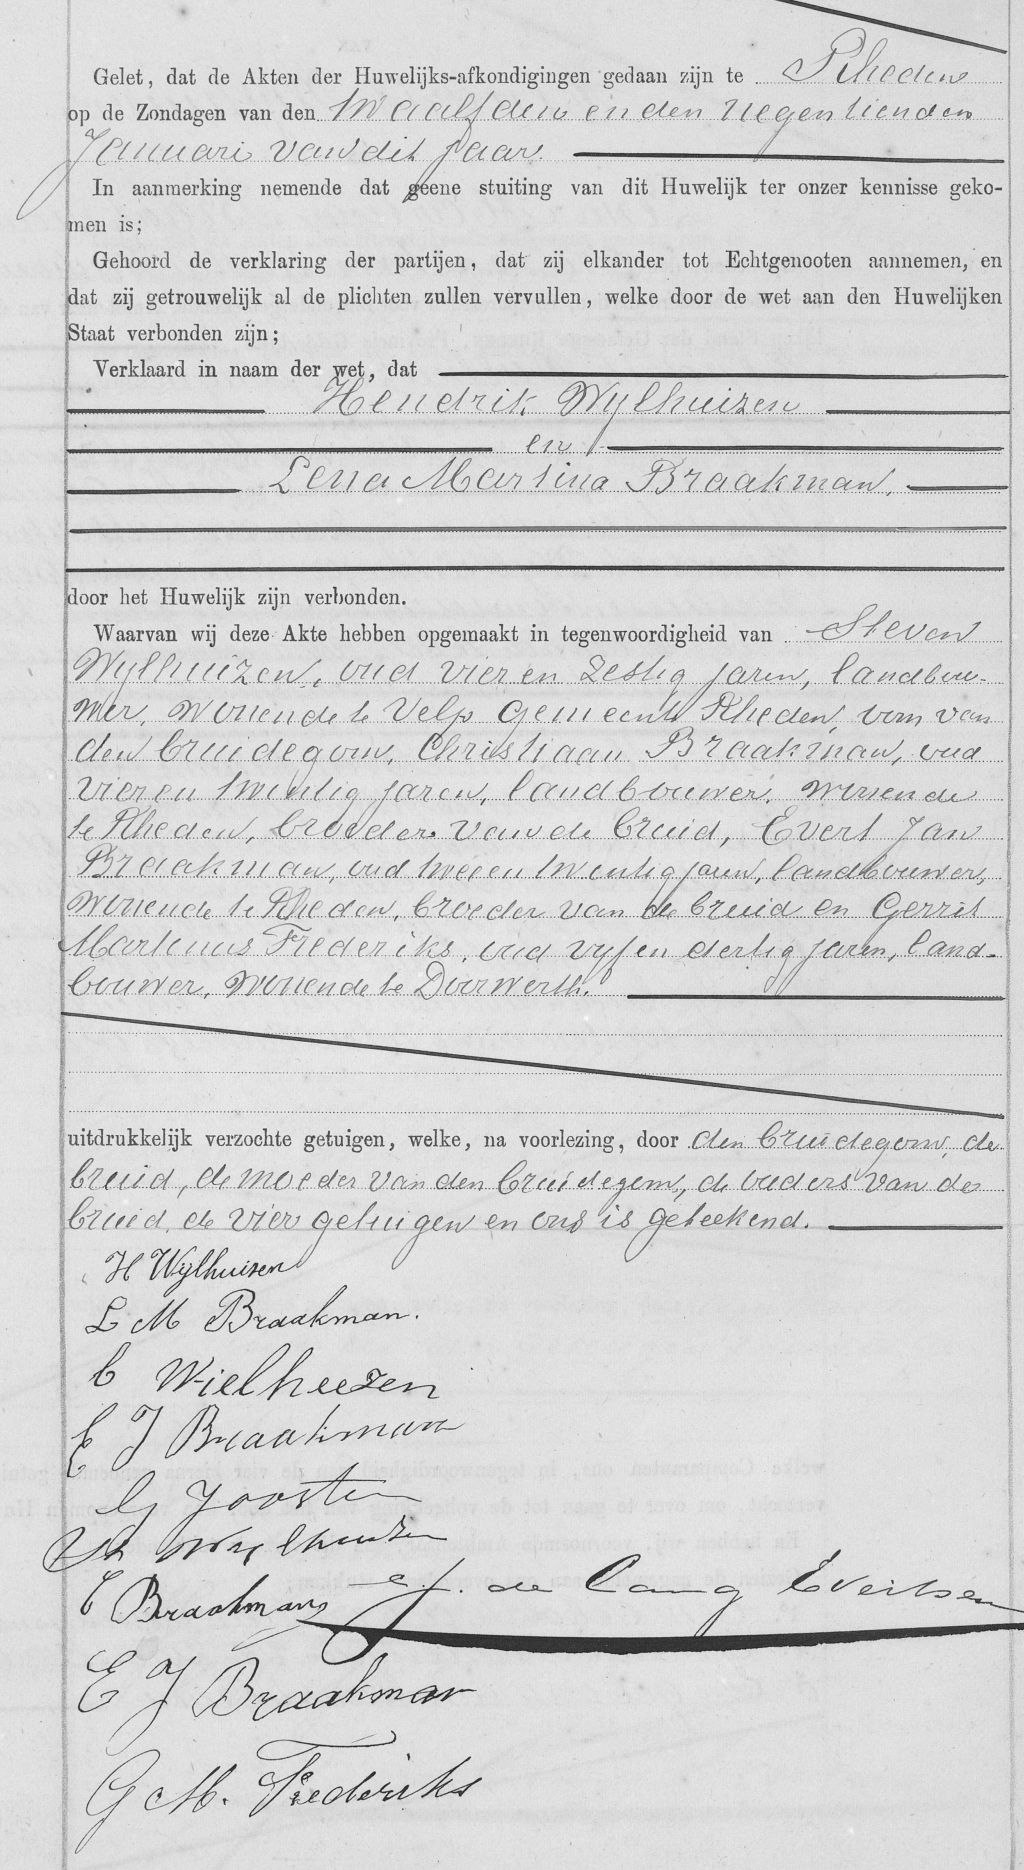 Gelet, dat de Akten der Huwelijks-afkondigingen gedaan zijn te Rheden
op de Zondagen van den twaalfden en den negentienden
Januari van dit jaar.
In aanmerking nemende dat geene stuiting van dit Huwelijk ter onzer kennisse geko-
men is;
Gehoord de verklaring der partijen, dat zij elkander tot Echtgenooten aannemen, en
dat zij getrouwelijk al de plichten zullen vervullen, welke door de wet aan den Huwelijken
Staat verbonden zijn;
Verklaard in naam der wet, dat
Hendrik Wylhuizen
en
Lena Martina Braakman.
door het Huwelijk zijn verbonden.
Waarvan wij deze Akte hebben opgemaakt in tegenwoordigheid van Steven
Wylhuizen, oud vier en zestig jaren, landbou-
wer, wonende te Velp gemeente Rheden, oom van
den bruidegom, Christiaan Braakman, oud
vier en twintig jaren, landbouwer, wonende
te Rheden, broeder van de bruid, Evert Jan
Braakman, oud twee en twintig jaren, landbouwer,
wonende te Rheden, broeder van de bruid en Gerrit
Martinus Frederiks, oud vyf en dertig jaren, land-
bouwer, wonende te Doorwerth.
uitdrukkelijk verzochte getuigen, welke, na voorlezing, door den bruidegom, de
bruid, de moeder van den bruidegom, de ouders van de
bruid, de vier getuigen en ons is geteekend.
H Wijlhuizen
L M Braakman.
C Wielheezen
E J Braakman
G Joosten
St Wylhuizen
C Braakman
de Lang Evertsen
E J Braakman
G M. Frederiks